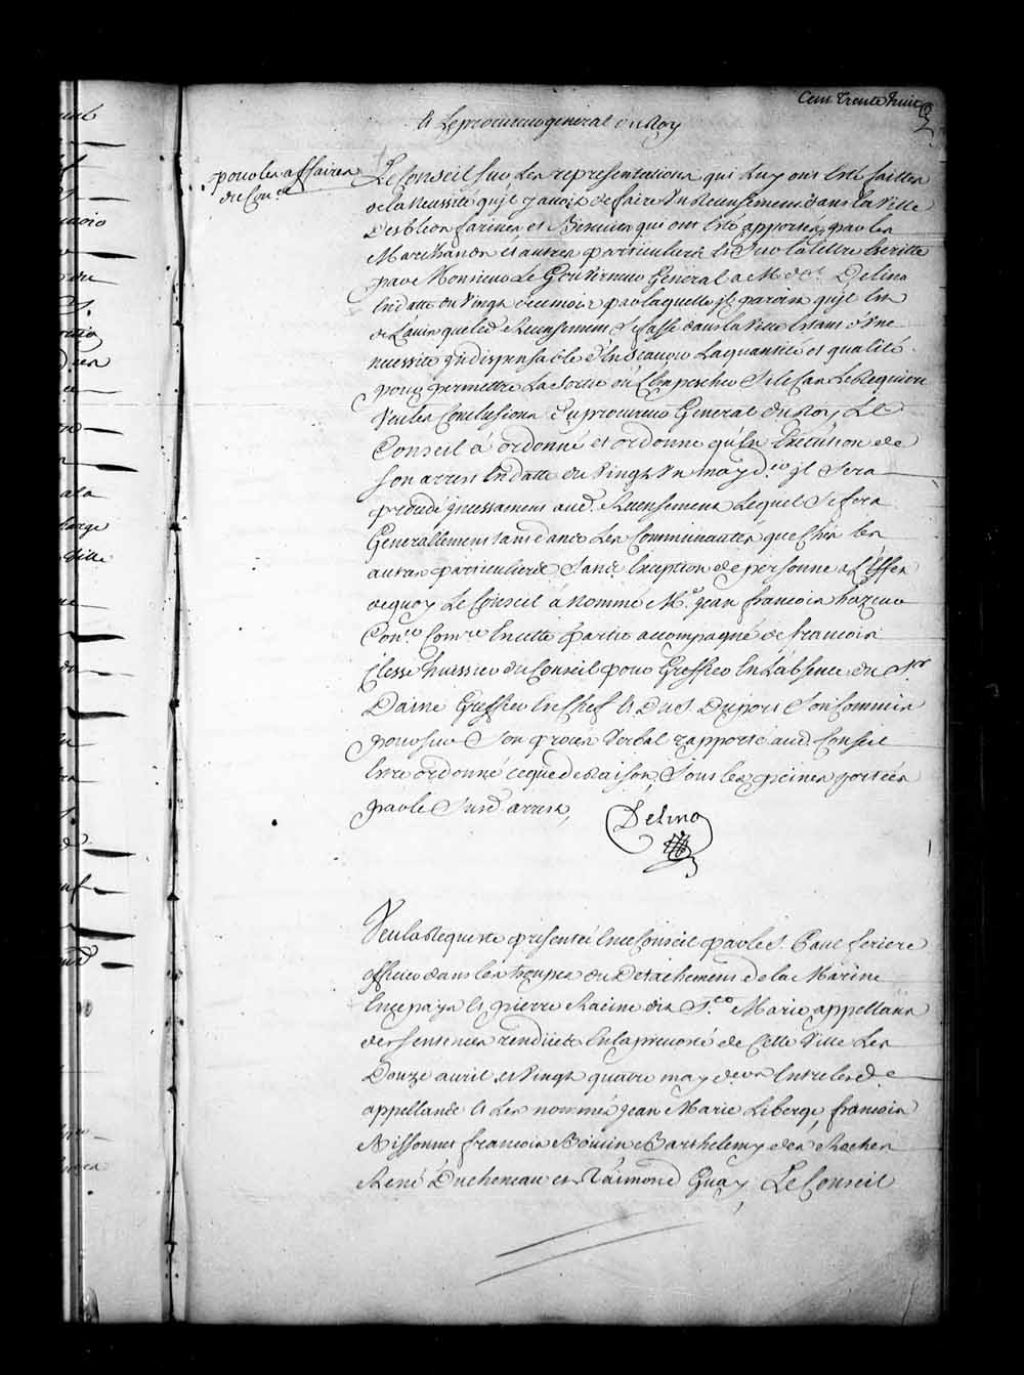 Cent trente huit
Et Le procureur general du Roy
pour les affaires
du Con.el
Le Conseil sur Les representations qui Luy ont Esté faittes
de la Necessité qu'il y auoit de faire Un Recensement dans la Ville
Des bleds farines et Biscuits qui ont Esté apportez par les
Marchands et autres particuliers Et Sur la lettre Escritte
par Monsieur Le Gouuerneur General a M. de S.t Delino
En datte du Vingt de ce mois par laquelle jl paroist qu'jl Est
de L'auis que led. Recensement Se fasse dans la Ville Estant d'Une
necessité jndispensable d'En Scauoir La quantité et qualité
pour permettre La Sortie ou L'Empescher Si le Cas Le Requiere
Veu les Conclusions du procureur General du Roy Le
Conseil á ordonné et ordonne qu'En Execution de
son arrest En datte du Vingt Un may d.er jl Sera
procedé jncessament aud. Recensement Lequel Se fera
Generallement tant dans Les Communautés que Chés les
autres particuliers Sans Exception de personne a L'Effet
de quoy Le Conseil a Nommé M.e jean francois hazeur
Con.er Com.re En cette partie accompagné de francois
Clesse huissier du Conseil pour Greffier En L'absence du S.r
Daine Greffier En Chef Et Du S. Dupont Son Commis
pour sur Son procez Verbal rapporté aud. Conseil
Estre ordonné ce que de Raison, Sous les peines portées
par le Susd. arrest,
Delino
Veu la Requeste presentée En ce Conseil par le S. Paul feriere
officier dans les troupes du Detachement de la Marine
En ce pays Et pierre Racine dit S.te Marie appellans
de sentences rendües En la preuosté de Cette Ville Les
Douze auril et Vingt quatre may d.ers Entre lesd.
appellants Et Les nommés jean Marie Liberge, francois
Nissonnet francois Boiuin Barthelemy des Rochers
René Ducheneau et Raimond Guay, Le Conseil